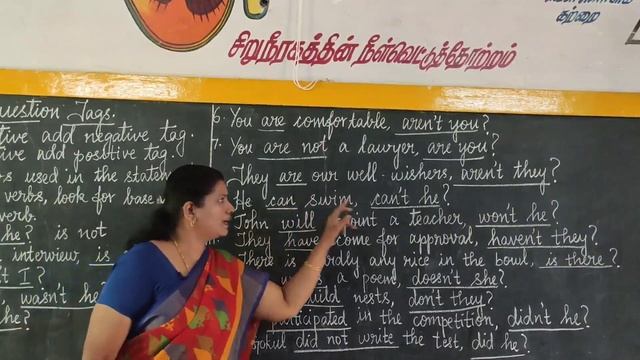 சிறுநீரகத்தின் நீள்வெட்டுத்தோற்றம்
கற்றை
uestion Tags.
tive add negative tag.
tive add positive tag.
s used in the statem
verbs, look for base
verb.
he? is not
interview, is
t I?
wasn't he?
he?
6. You are comfortable, aren't you?
7. You are not a lawyer, are you?
They are our well-wishers, aren't they?
He can swim, can't he?
John will a teacher, won't he?
They have come for approval, haven't they?
There is hardly any rice in the bowl, is there?
a poem, doesn't she?
build nests, don't they?
participated in the competition, didn't he?
okul did not write the test, did he?